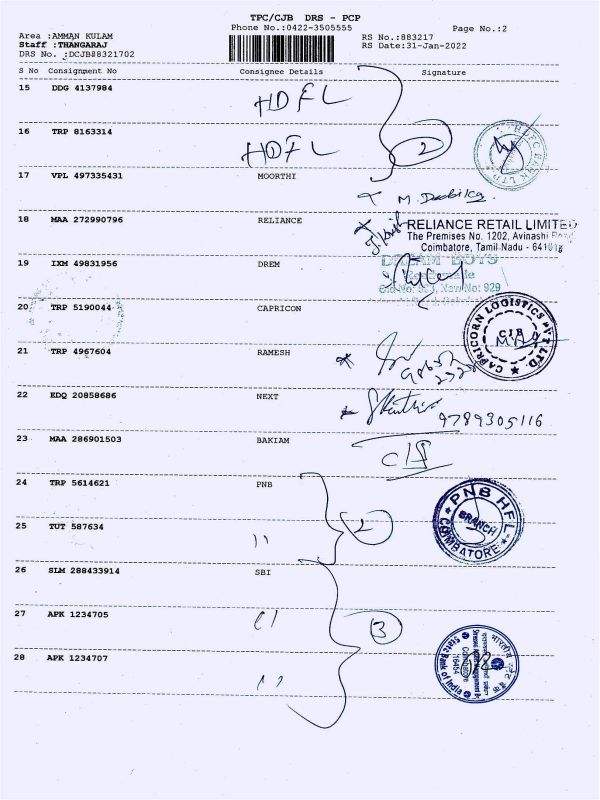 TPC/CJB DRS - PCP
Phone No.:0422-3505555
Page No.:2
Area :AMMAN KULAM
Staff :THANGARAJ
DRS No. :DCJB88321702
RS No.:883217
RS Date:31-Jan-2022
S No Consignment No Consignee Details Signature
15 DDG 4137984 HDFC
16 TRP 8163314 HDFC
2
17 VPL 497335431 MOORTHI
18 MAA 272990796 RELIANCE
RELIANCE RETAIL LIMITED
The Premises No. 1202, Avinashi Road
Coimbatore, Tamil Nadu - 641018
19 IXM 49831956 DREM
DREAM BOYS
New No: 929
20 TRP 5190044 CAPRICON
CAPRICORN LOGISTICS PVT LTD
CJB
21 TRP 4967604 RAMESH
22 EDQ 20858686 NEXT
9789305116
23 MAA 286901503 BAKIAM
24 TRP 5614621 PNB
PNB HFL
BRANCH
COIMBATORE
25 TUT 587634 ''
2
26 SLM 288433914 SBI
27 APK 1234705 ''
3
28 APK 1234707 ''
State Bank of India
Coimbatore
16454